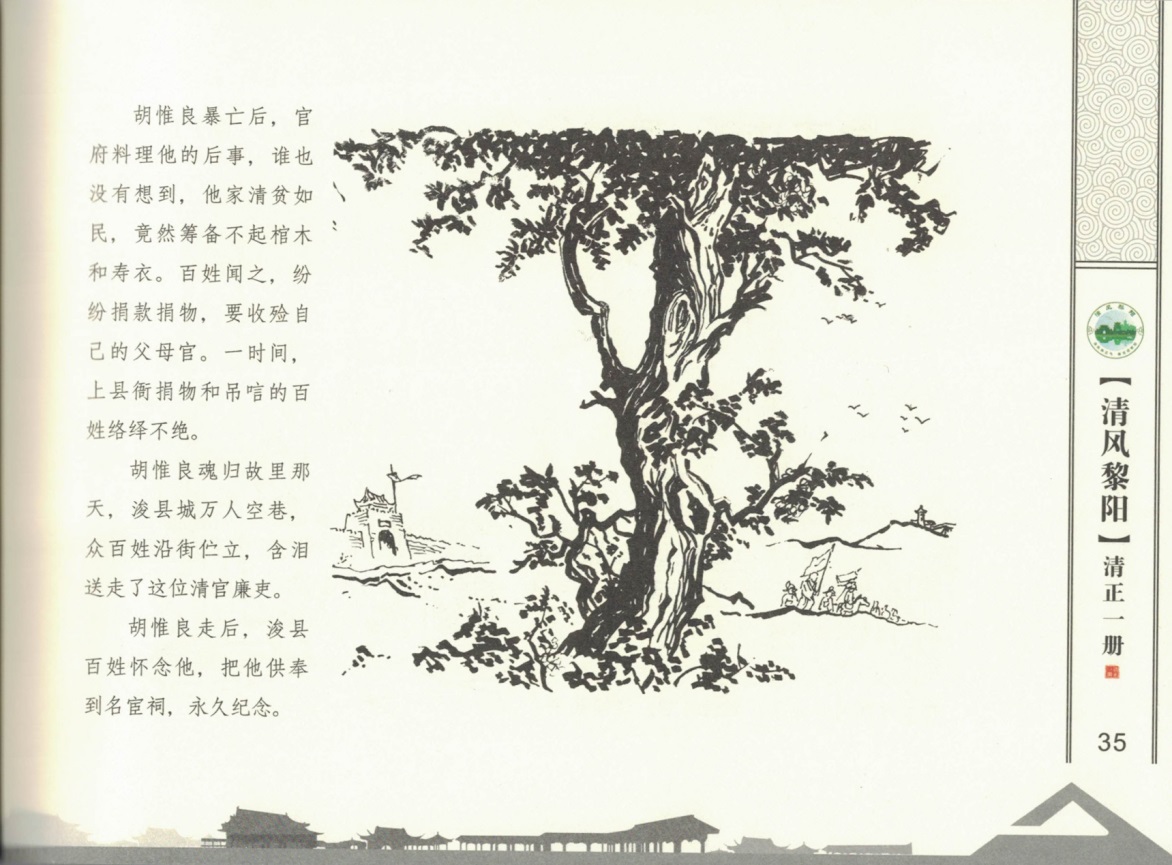 胡惟良暴亡后，官
府料理他的后事，谁也
没有想到，他家清贫如
民，竟然筹备不起棺木
和寿衣。百姓闻之，纷
纷捐款捐物，要收殓自
己的父母官。一时间，
上县衙捐物和吊唁的百
姓络绎不绝。
胡惟良魂归故里那
天，浚县城万人空巷，
众百姓沿街伫立，含泪
送走了这位清官廉吏。
胡惟良走后，浚县
百姓怀念他，把他供奉
到名宦祠，永久纪念。
【清风黎阳】清正一册
35